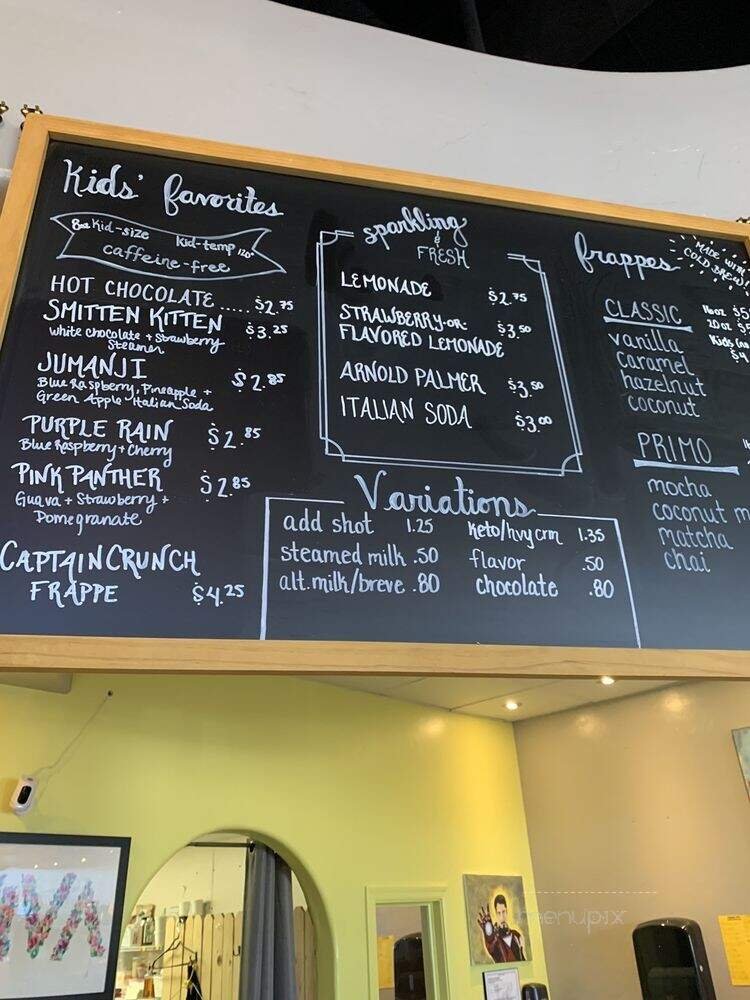 Kids' favorites
8oz Kid-size Kid-temp 120°
caffeine-free
HOT CHOCOLATE..... $2.75
SMITTEN KITTEN $3.25
white chocolate + Strawberry
Steamer
JUMANJI $2.85
Blue Raspberry, Pineapple +
Green Apple Italian Soda
PURPLE RAIN $2.85
Blue Raspberry + Cherry
PINK PANTHER $2.85
Guava + Strawberry +
Pomegranate
CAPTAIN CRUNCH
FRAPPE $4.25
sparkling
&
FRESH
LEMONADE $2.75
STRAWBERRY-OR-
FLAVORED LEMONADE $3.50
ARNOLD PALMER $3.50
ITALIAN SODA $3.00
Variations
add shot 1.25 keto/hvy crm 1.35
steamed milk .50 flavor .50
alt. milk/breve .80 chocolate .80
frappes
MADE WITH
COLD BREW
CLASSIC
16oz $5
20oz
Kids
vanilla
caramel
hazelnut
coconut
PRIMO
mocha
coconut m
matcha
chai
menupix